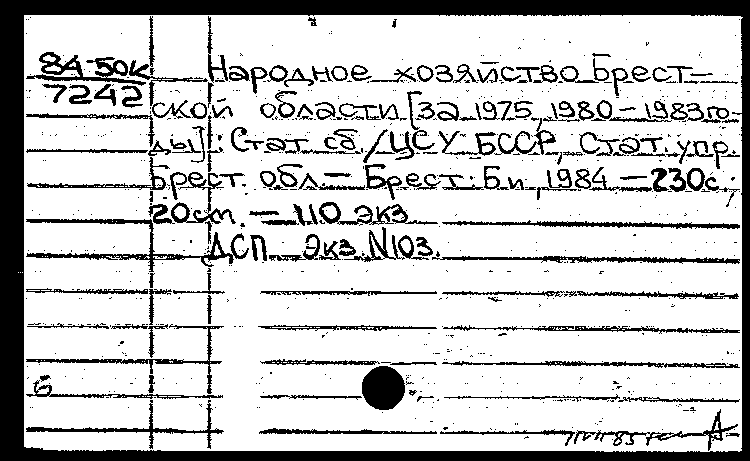 84-50к
7242
Народное хозяйство Брест-
ской области [за 1975, 1980-1983 го-
ды]: Стат. сб. / ЦСУ БССР, Стат. упр.
Брест. обл. — Брест: Б.и., 1984 — 230с.;
20см. — 110 экз.
ДСП Экз. N103.
Б
А